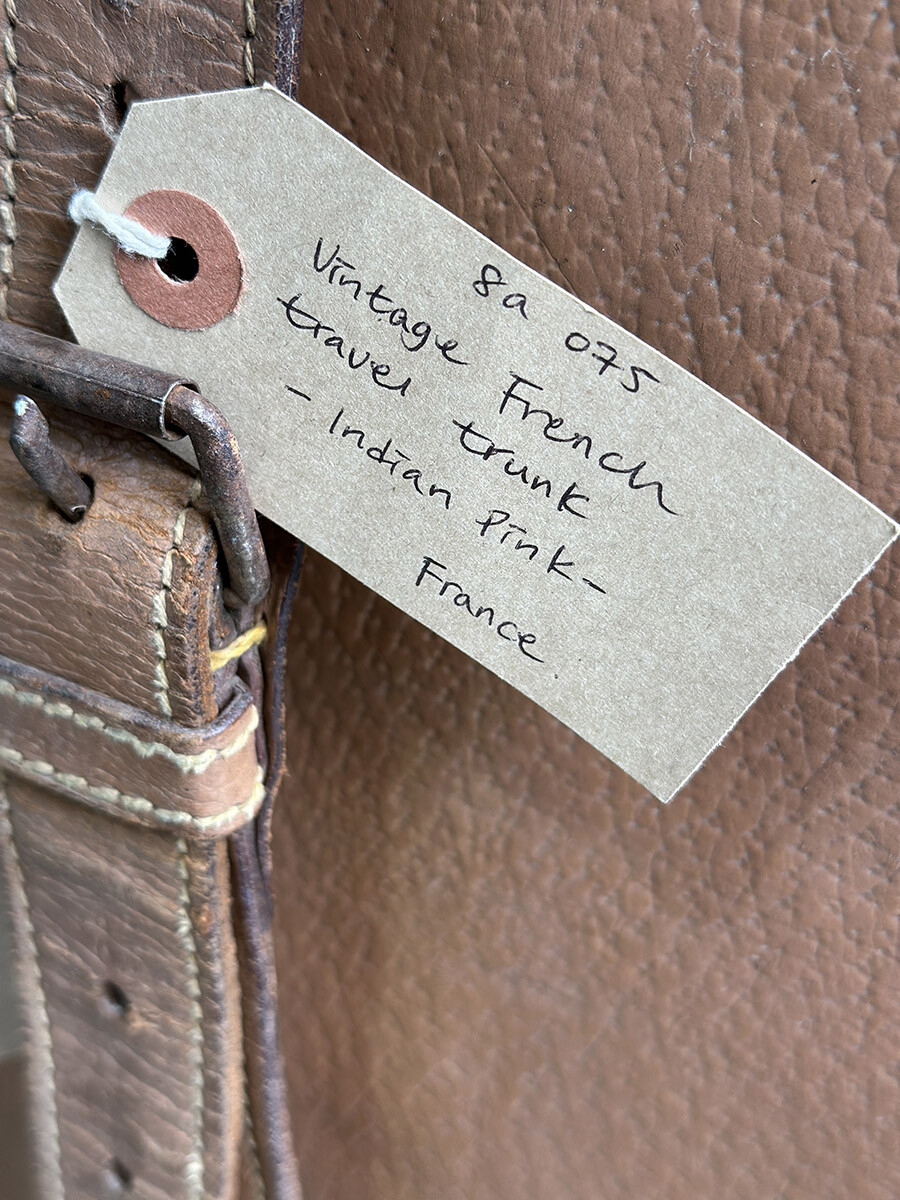 8a 075
Vintage French
travel trunk
- Indian Pink -
France